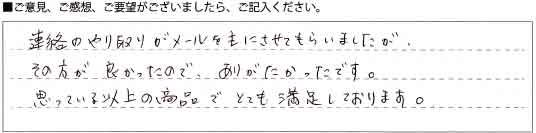 ■ご意見、ご感想、ご要望がございましたら、ご記入ください。
連絡のやり取りがメールを主にさせてもらいましたが、
その方が良かったので、ありがたかったです。
思っている以上の商品でとても満足しております。